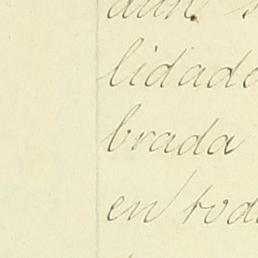 lidade
brada
en tod